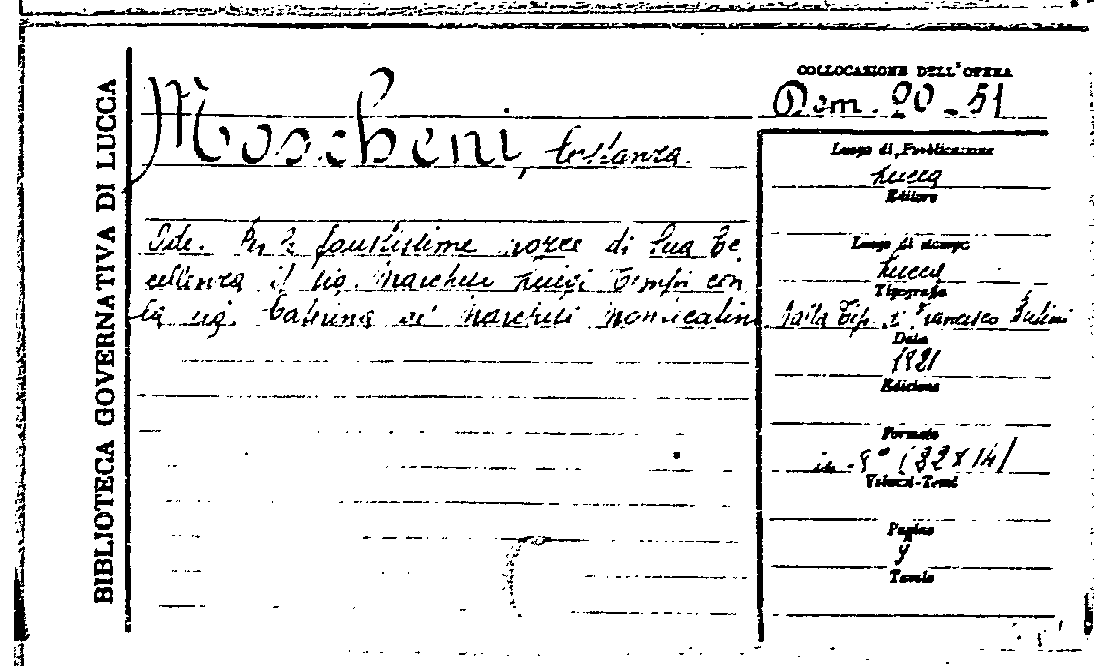 BIBLIOTECA GOVERNATIVA DI LUCCA
Moscheni, Costanza.
Ode. Per le faustissime nozze di Sua Ec
cellenza il sig. Marchese Luigi Tempi con
la sig. Caterina de' Marchesi
COLLOCAZIONE DELL'OPERA
Dom. 20-51
Luogo di Pubblicazione
Lucca
Editore
Luogo di stampa
Lucca
Tipografia
Dalla Tip. di Francesco
Data
1821
Edizione
Formato
in-8°
Volumi-Tomi
Pagine
Tavole